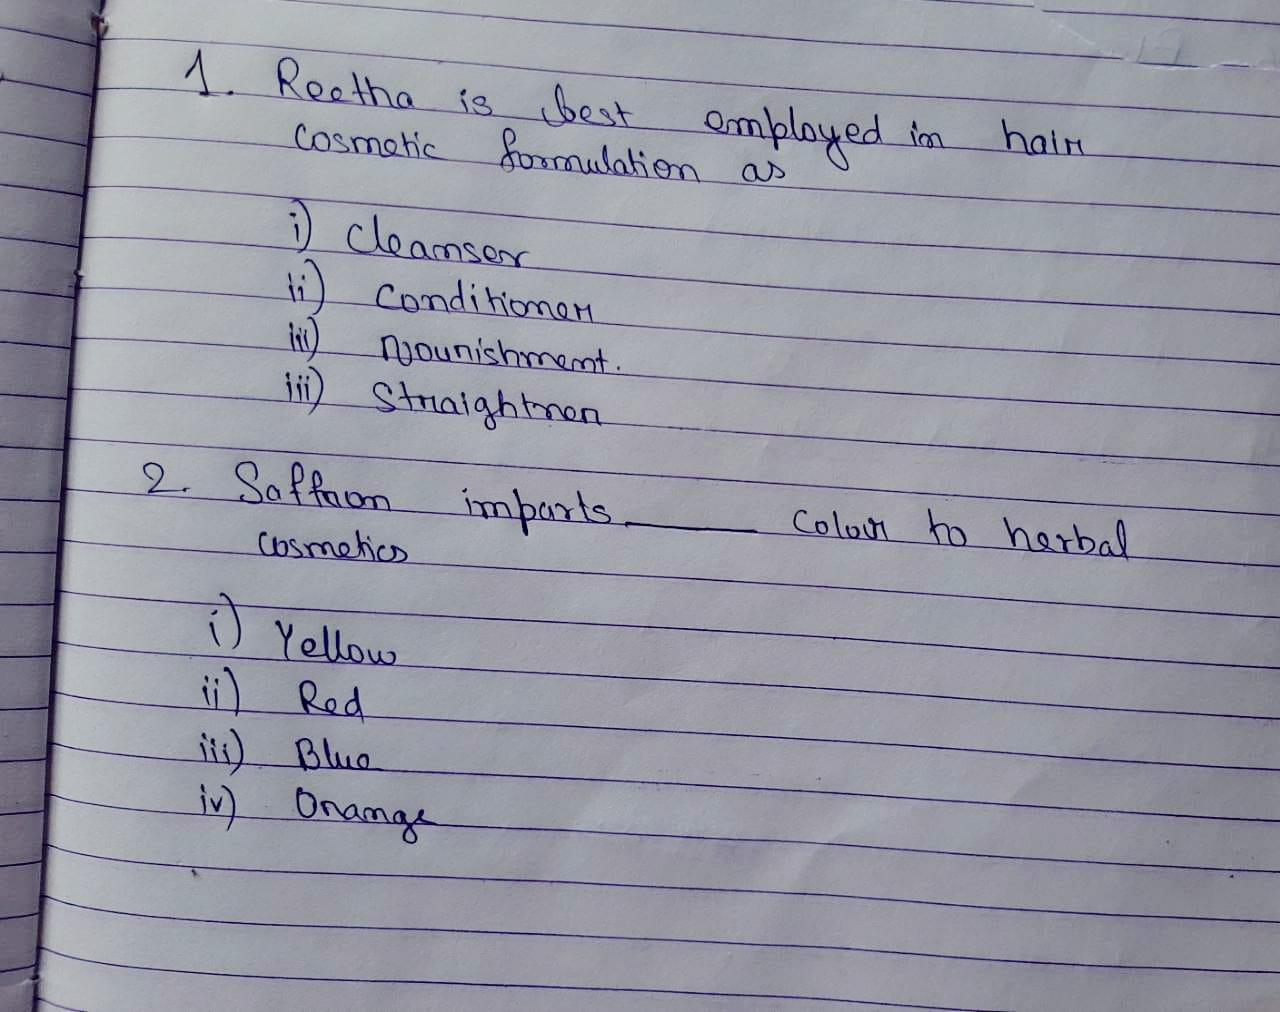 1. Reetha is best employed in hair
cosmetic formulation as
i) Cleanser
ii) Conditioner
iii) Nourishment.
iii) Straightner
2. Saffron imparts ______ colour to herbal
cosmetics
i) Yellow
ii) Red
iii) Blue
iv) Orange